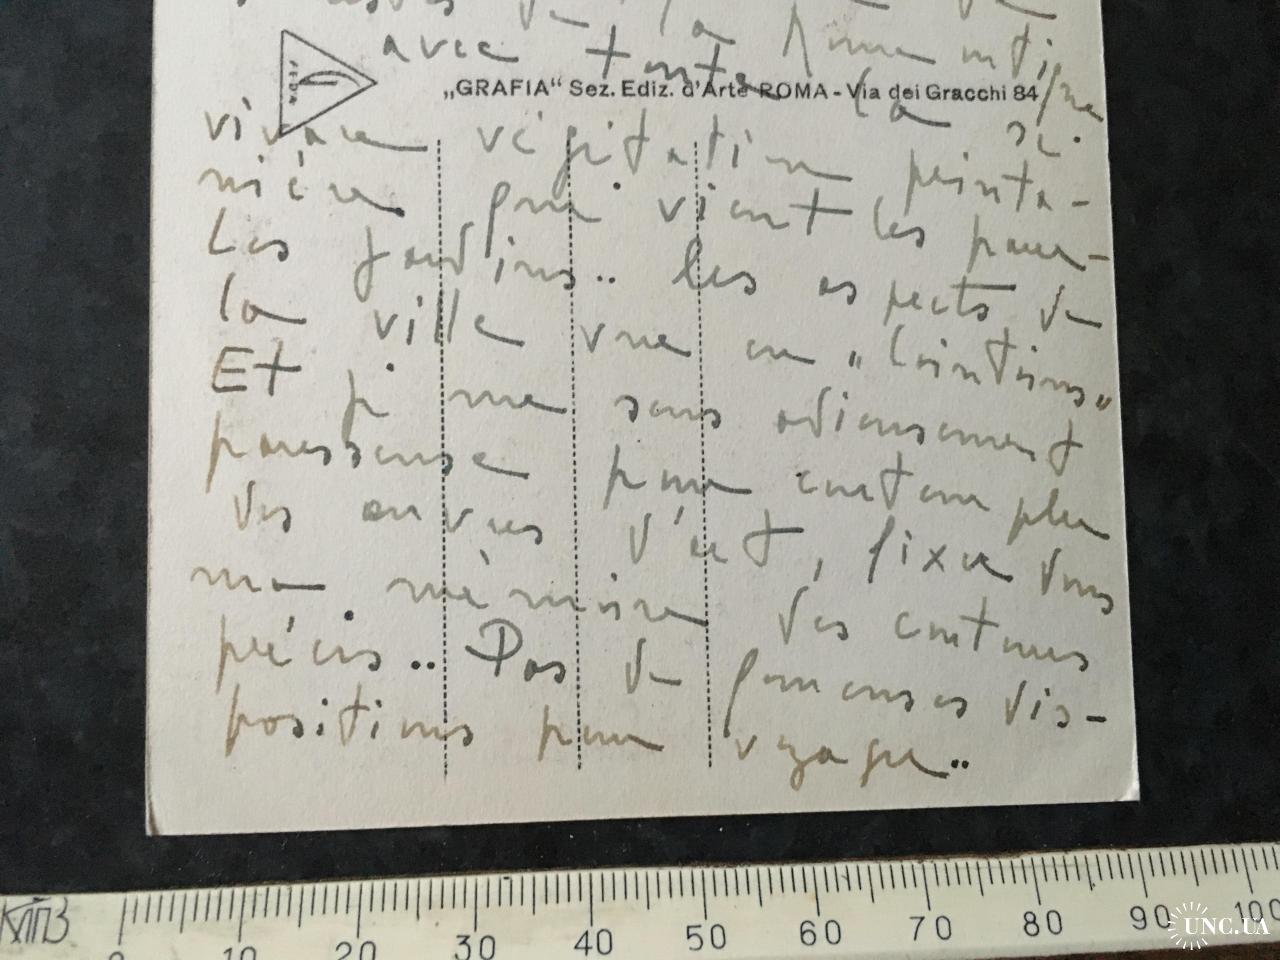 de la Rome antique
avec toute la si
„GRAFIA“ Sez. Ediz. d'Arte ROMA - Via dei Gracchi 84
vivace végétation printa-
nière qui vient les parer-
Les jardins.. les aspects de
la ville vue en "lointains"
Et je me sens odieusement
paresseuse pour contempler
des œuvres d'art, fixer dans
ma mémoire des contours
précis.. Pas de fameuses dis-
positions pour voyager..
КЛПЗ
0 10 20 30 40 50 60 70 80 90 100
UNC.UA